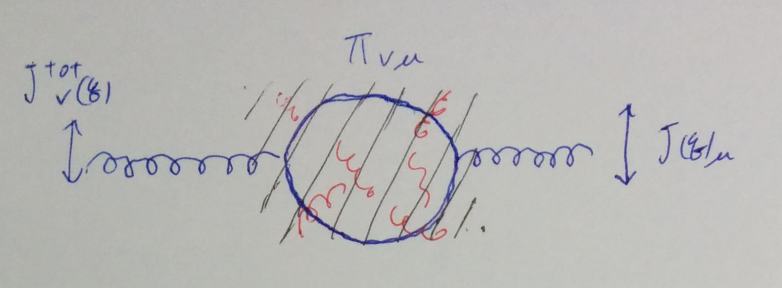 Πνμ
J^tot_ν(q)
J(q)μ